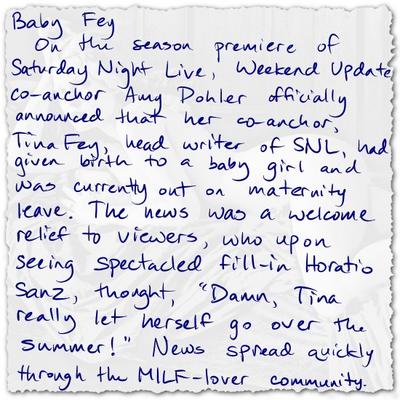 Baby Fey
On the season premiere of
Saturday Night Live, Weekend Update
co-anchor Amy Pohler officially
announced that her co-anchor,
Tina Fey, head writer of SNL, had
given birth to a baby girl and
was currently out on maternity
leave. The news was a welcome
relief to viewers, who upon
seeing spectacled fill-in Horatio
Sanz, thought, "Damn, Tina
really let herself go over the
summer!" News spread quickly
through the MILF-lover community.